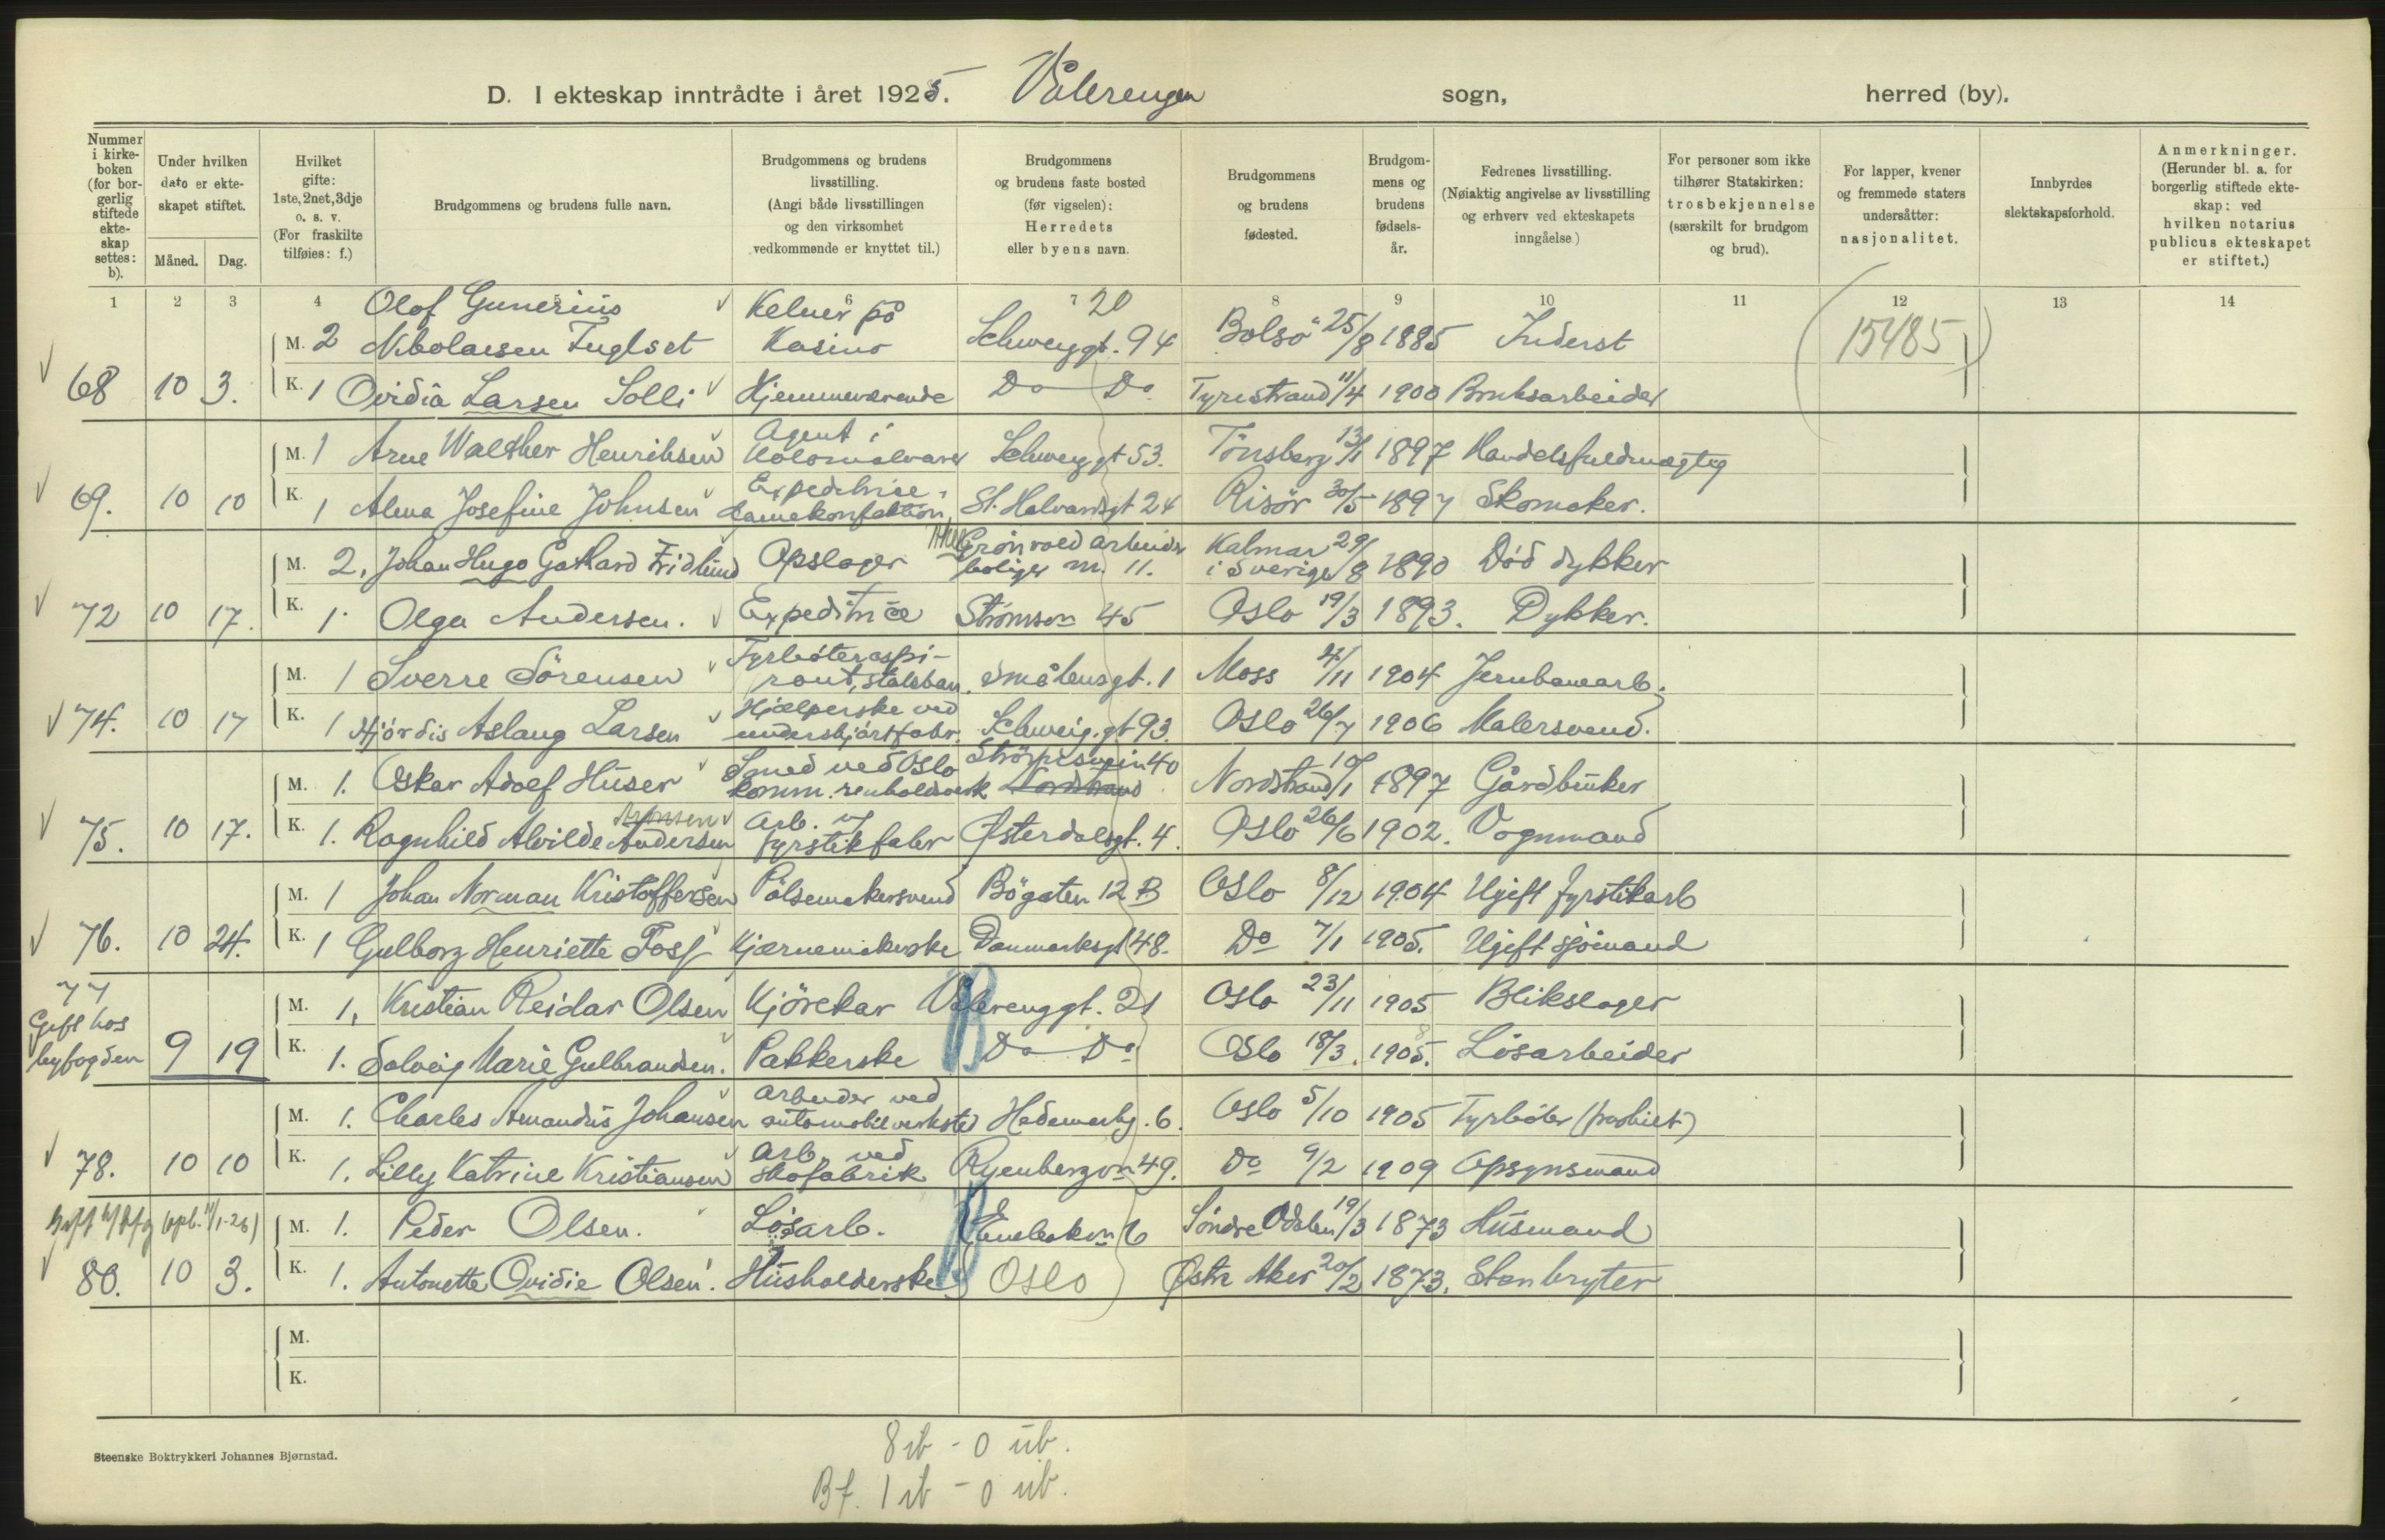 D. I ekteskap inntrådte i året 1925. Vålerengen sogn, herred (by).
Nummer i kirke-boken (for bor-gerlig stiftede ekte-skap settes: b).
Under hvilken dato er ekte-skapet stiftet.
Måned. Dag.
Hvilket gifte: 1ste, 2net, 3dje o. s. v. (For fraskilte tilføies: f.)
Brudgommens og brudens fulle navn.
Brudgommens og brudens livsstilling. (Angi både livsstillingen og den virksomhet vedkommende er knyttet til.)
Brudgommens og brudens faste bosted (før vigselen): Herredets eller byens navn.
Brudgommens og brudens fødested.
Brudgom-mens og brudens fødsels-år.
Fedrenes livsstilling. (Nøiaktig angivelse av livsstilling og erhverv ved ekteskapets inngåelse)
For personer som ikke tilhører Statskirken: trosbekjennelse (særskilt for brudgom og brud).
For lapper, kvener og fremmede staters undersåtter: nasjonalitet.
Innbyrdes slektskapsforhold.
Anmerkninger. (Herunder bl. a. for borgerlig stiftede ekte-skap: ved hvilken notarius publicus ekteskapet er stiftet.)
1 2 3 4 5 6 7 8 9 10 11 12 13 14
20
68 10 3.
M. 2 Olof Gunerius Nikolaisen Fuglset Kelner på Kasino Schweiggt. 94 Bolsö 25/8 1885 Inderst (15485)
K. 1 Ovidia Larsen Solli Hjemmeværende Do Do Tyristrand 11/4 1900 Bruksarbeider
69. 10 10
M. 1 Arne Walther Henriksen Agent i Kolonialvarer Schweiggt 53. Tönsberg 13/1 1897 Handelsfuldmægtig
K. 1 Alma Josefine Johnsen Expeditrice i Damekonfektion St. Halvardsgt 24 Risör 30/5 1897 Skomaker.
72 10 17.
M. 2. Johan Hugo Gothard Fridlund Opslager Grönvold arbeider boliger m. 11. Kalmar i Sverige 29/8 1890 Död dykker
K. 1. Olga Andersen. Expeditrice Strømsvn 45 Oslo 19/3 1893. Dykker.
74. 10 17
M. 1 Sverre Sörensen Fyrböteraspirant, statsban. Smålensgt. 1 Moss 4/11 1904 Jernbanearb.
K. 1 Hjördis Aslaug Larsen Hjælperske ved underskjörtfabr. Schweig.gt 93. Oslo 26/7 1906 Malersvend.
75. 10 17.
M. 1. Oskar Adolf Huser Smed ved Oslo komm. renholdsverk Strömsvein 40 Nordstrand Nordstrand 10/1 1897 Gårdbruker
K. 1. Ragnhild Alvilde Andersen Arb. v/ fyrstikfabr Østerdalsgt. 4. Oslo 26/6 1902. Vognmand
76. 10 24.
M. 1 Johan Norman Kristoffersen Pölsemakersvend Bögaten 12 B Oslo 8/12 1904 Ugift fyrstikarb
K. 1 Gulborg Henriette Foss Kjærnemakerske Danmarksgt 48. Do 7/1 1905. Ugift sjömand
77 Gift hos byfogden 9 19
M. 1. Kristian Reidar Olsen Kjörekar Vålerenggt. 21 Oslo 23/11 1905 Blikslager
K. 1. Solveig Marie Gulbrandsen. Pakkerske Do Do Oslo 18/3. 1905. Lösarbeider
78. 10 10
M. 1. Charles Amandus Johansen Arbeider ved automobilverksted Hedemarksg. 6. Oslo 5/10 1905 Fyrböter
K. 1. Lilly Katrine Kristiansen Arb. ved skofabrik Ryenbergvn 49. Do 9/2 1909 Opsynsmand
80. 10 3.
M. 1. Peder Olsen. Lösarb. Enebakvn 6 Söndre Odalen 19/3 1873 Husmand
K. 1. Antonette Ovidie Olsen. Husholderske Oslo Østre Aker 20/2 1873. Stenbryter
M.
K.
Steenske Boktrykkeri Johannes Bjørnstad.
8 ib - 0 ub.
Bf. 1 ib - 0 ub.